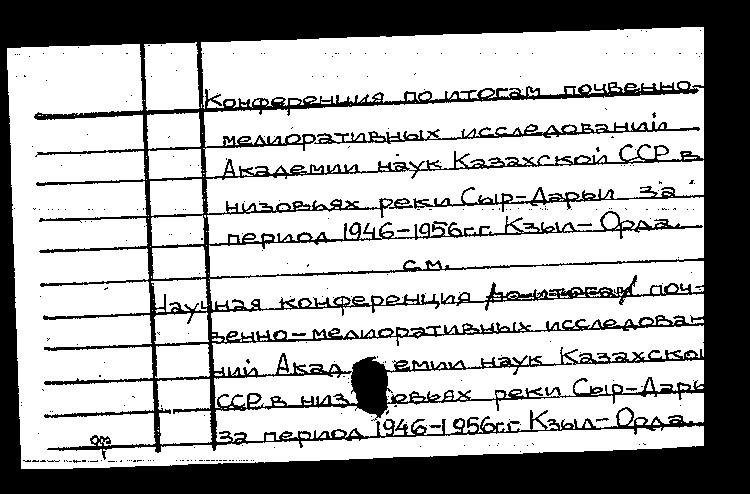 Конференция по итогам почвенно-
мелиоративных исследований
Академии наук Казахской ССР в
низовьях реки Сыр-Дарьи за
период 1946-1956гг. Кзыл-Орда.
см.
Научная конференция по итогам поч-
венно-мелиоративных исследован
ний Академии наук Казахской
ССР в низовьях реки Сыр-Дарь
за период 1946-1956гг Кзыл-Орда.